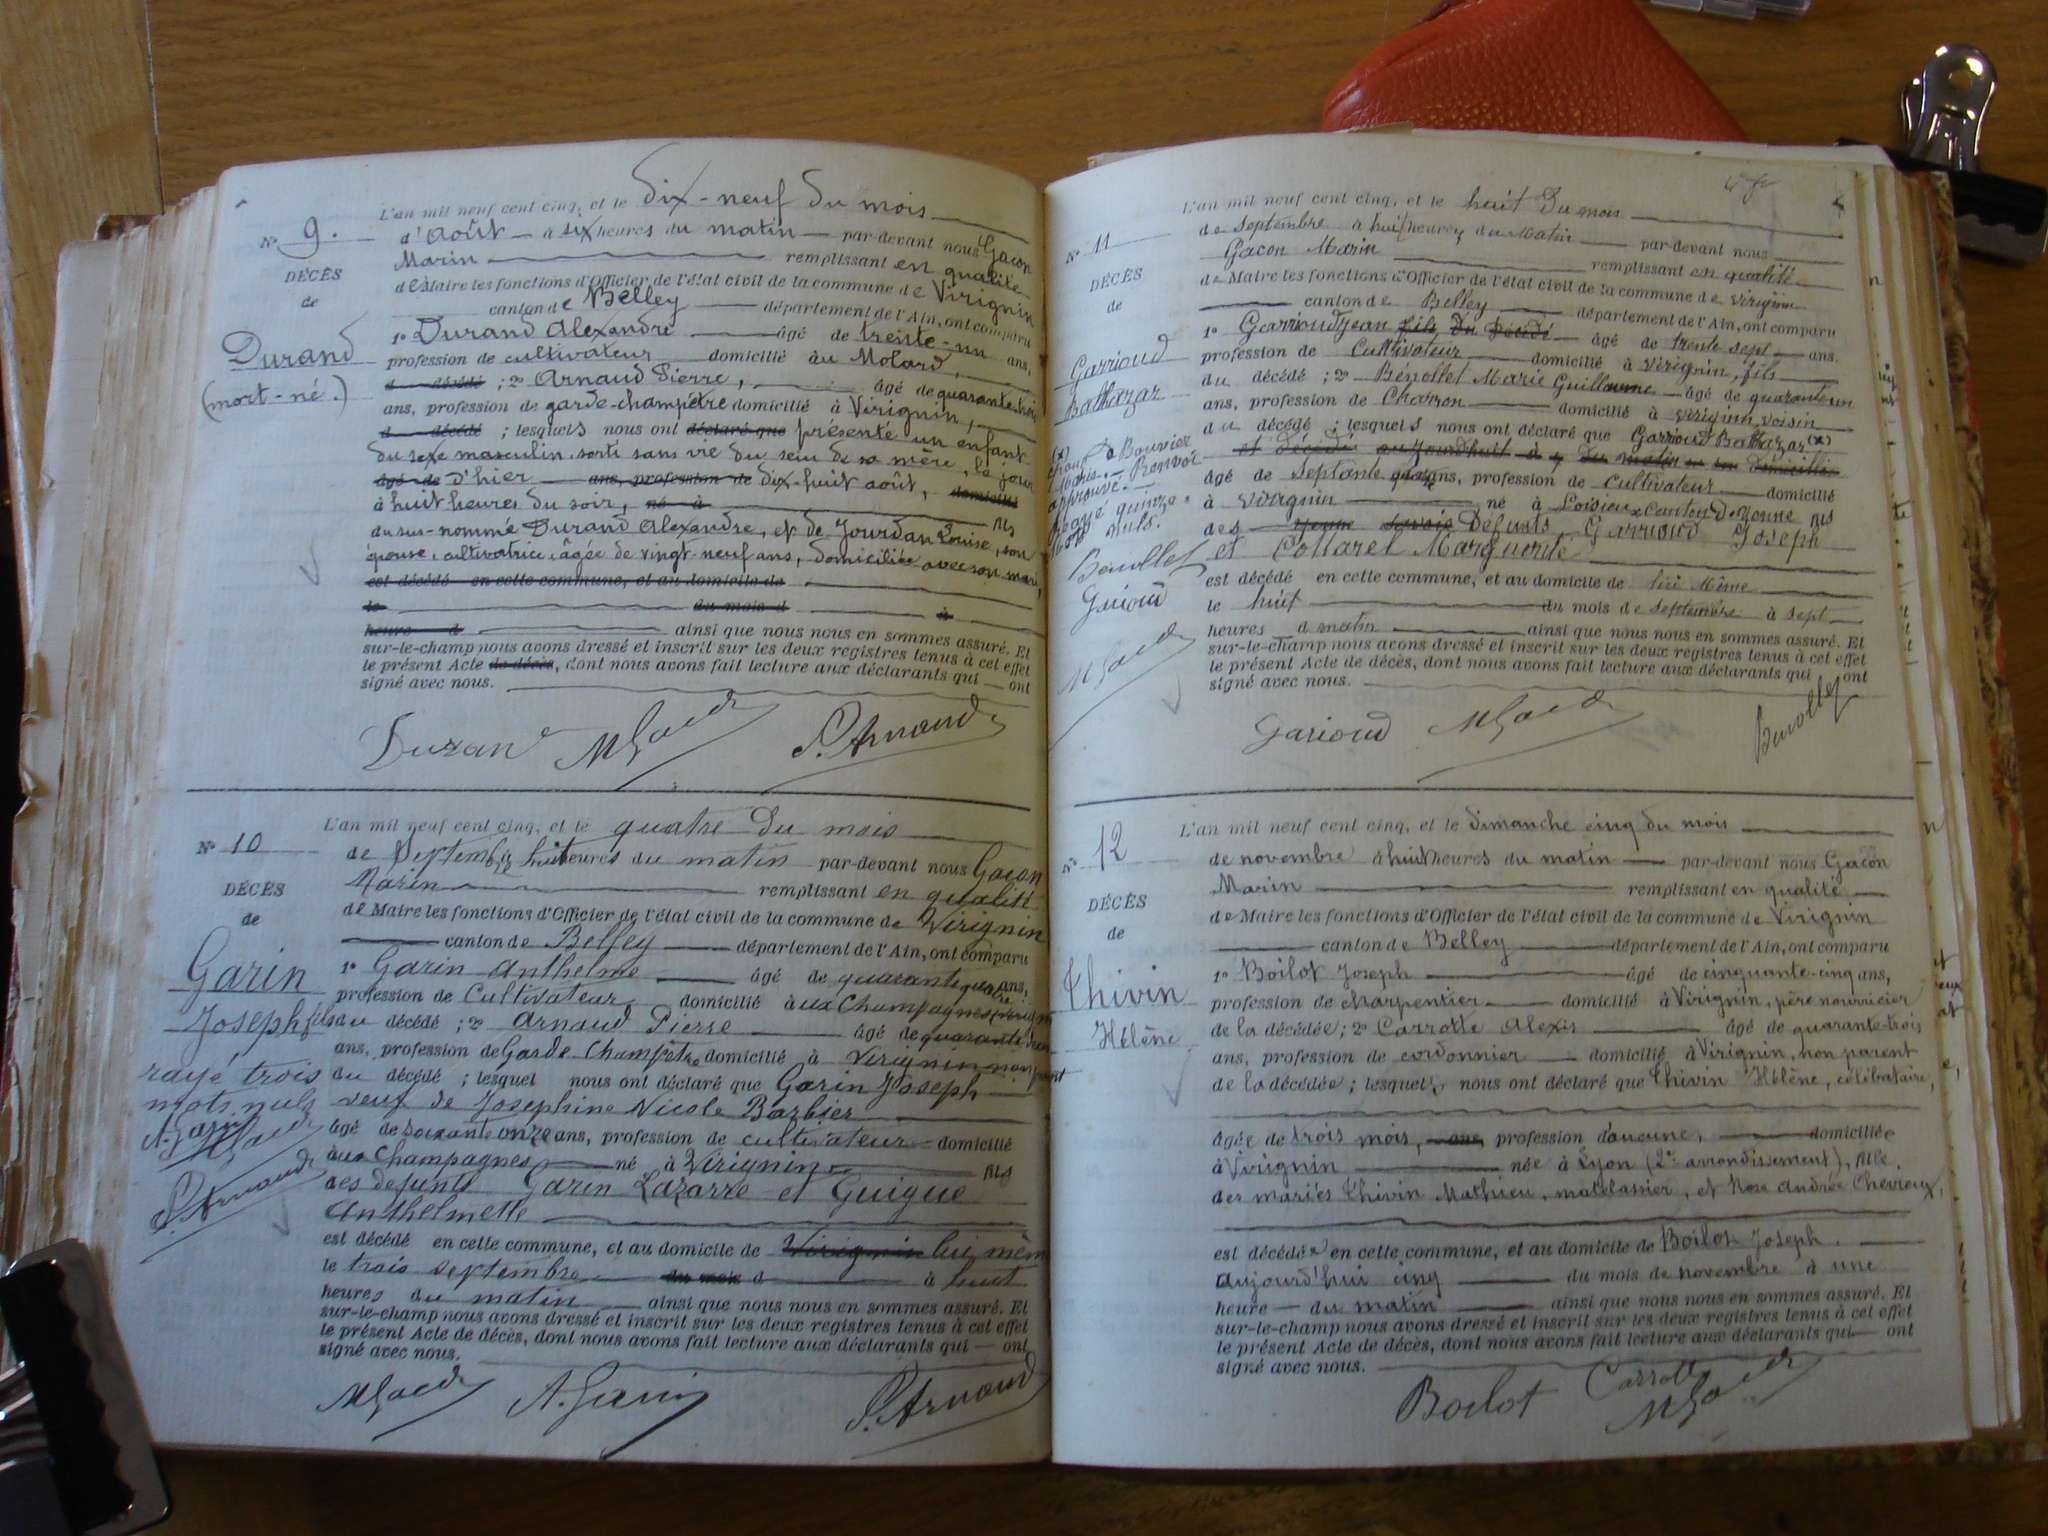 L'an mil neuf cent cinq, et le dix-neuf du mois
N° 9.
d'août à six heures du matin par-devant nous Gacon
Marin remplissant en qualité
de Maire les fonctions d'Officier de l'état civil de la commune de Virignin
canton de Belley département de l'Ain, ont comparu
DÉCÈS
de
Durand
(mort-né.)
1° Durand Alexandre âgé de trente-un ans,
profession de cultivateur domicilié au Molard,
d décédé ; 2° Arnaud Pierre, âgé de quarante-trois
ans, profession de garde-champêtre domicilié à Virignin,
d décédé ; lesquels nous ont déclaré que présenté un enfant
du sexe masculin, sorti sans vie du sein de sa mère, le jour
âgé de d'hier ans, profession de dix-huit août, domicilié
à huit heures du soir, né à fils
du sus-nommé Durand Alexandre, et de Jourdan Louise, son
épouse, cultivatrice, âgée de vingt-neuf ans, domiciliée avec son mari,
est décédé en cette commune, et au domicile de
le du mois d à
heure d ainsi que nous nous en sommes assuré. Et
sur-le-champ nous avons dressé et inscrit sur les deux registres tenus à cet effet
le présent Acte de décès, dont nous avons fait lecture aux déclarants qui ont
signé avec nous.
Durand MGacon P. Arnaud
L'an mil neuf cent cinq, et le quatre du mois
N° 10
de Septembre huit heures du matin par-devant nous Gacon
Marin remplissant en qualité
de Maire les fonctions d'Officier de l'état civil de la commune de Virignin
canton de Belley département de l'Ain, ont comparu
DÉCÈS
de
Garin
Joseph
rayé trois
mots nuls
A. Garin
MGacon
P. Arnaud
1° Garin Anthelme âgé de quarante quatre ans,
profession de Cultivateur domicilié aux Champagnes (Virignin
fils du décédé ; 2° Arnaud Pierre âgé de quarante trois
ans, profession de Garde Champêtre domicilié à Virignin non parent
du décédé ; lesquel nous ont déclaré que Garin Joseph
veuf de Josephine Nicole Barbier
âgé de soixante onze ans, profession de cultivateur domicilié
aux Champagnes né à Virignin fils
des defunts Garin Lazarre et Guigue
Anthelmette
est décédé en cette commune, et au domicile de Virignin lui même
le trois septembre du mois d à huit
heures du matin ainsi que nous nous en sommes assuré. Et
sur-le-champ nous avons dressé et inscrit sur les deux registres tenus à cet effet
le présent Acte de décès, dont nous avons fait lecture aux déclarants qui ont
signé avec nous.
MGacon A. Garin P. Arnaud
L'an mil neuf cent cinq, et le huit du mois
N° 11
de Septembre à huit heures du Matin par-devant nous
Gacon Marin remplissant en qualité
de Maire les fonctions d'Officier de l'état civil de la commune de Virignin
canton de Belley département de l'Ain, ont comparu
DÉCÈS
de
Garrioud
Balthazar
(x)
époux de Bouvier
Marie. Renvoi
approuvé.
Rayé quinze
mots nuls.
Benollet
Garioud
MGacon
1° Garrioud Jean fils du décédé âgé de trente sept ans.
profession de Cultivateur domicilié à Virignin, fils
du décédé ; 2° Bénollet Marie Guillaume âgé de quarante un
ans, profession de Charron domicilié à Virignin voisin
du décédé ; lesquels nous ont déclaré que Garrioud Balthazar (x)
et décédé aujourdhuit du matin domicile
âgé de septante ans, profession de Cultivateur domicilié
à Virignin né à Loisieux Canton d'Yenne fils
des Yenne Savoie Défunts Garrioud Joseph
et Collarel Marguerite
est décédé en cette commune, et au domicile de lui Même
le huit du mois de septembre à sept
heures d matin ainsi que nous nous en sommes assuré. Et
sur-le-champ nous avons dressé et inscrit sur les deux registres tenus à cet effet
le présent Acte de décès, dont nous avons fait lecture aux déclarants qui ont
signé avec nous.
Garioud MGacon Benollet
L'an mil neuf cent cinq, et le dimanche cinq du mois
N° 12
de novembre à huit heures du matin par-devant nous Gacon
Marin remplissant en qualité
de Maire les fonctions d'Officier de l'état civil de la commune de Virignin
canton de Belley département de l'Ain, ont comparu
DÉCÈS
de
Thivin
Hélène
1° Boilot Joseph âgé de cinquante-cinq ans,
profession de charpentier domicilié à Virignin, père nourricier
de la décédée ; 2° Carrotte Alexis âgé de quarante-trois
ans, profession de cordonnier domicilié à Virignin, non parent
de la décédée ; lesquels nous ont déclaré que Thivin Hélène, célibataire,
âgée de trois mois, ans, profession d'aucune, domiciliée
à Virignin née à Lyon (2e arrondissement), fille
des mariés Thivin Mathieu, matelassier, et Rose Andrée Chevroux,
est décédée en cette commune, et au domicile de Boilot Joseph.
aujourd'hui cinq du mois de novembre à une
heure du matin ainsi que nous nous en sommes assuré. Et
sur-le-champ nous avons dressé et inscrit sur les deux registres tenus à cet effet
le présent Acte de décès, dont nous avons fait lecture aux déclarants qui ont
signé avec nous.
Boilot Carrotte
MGacon